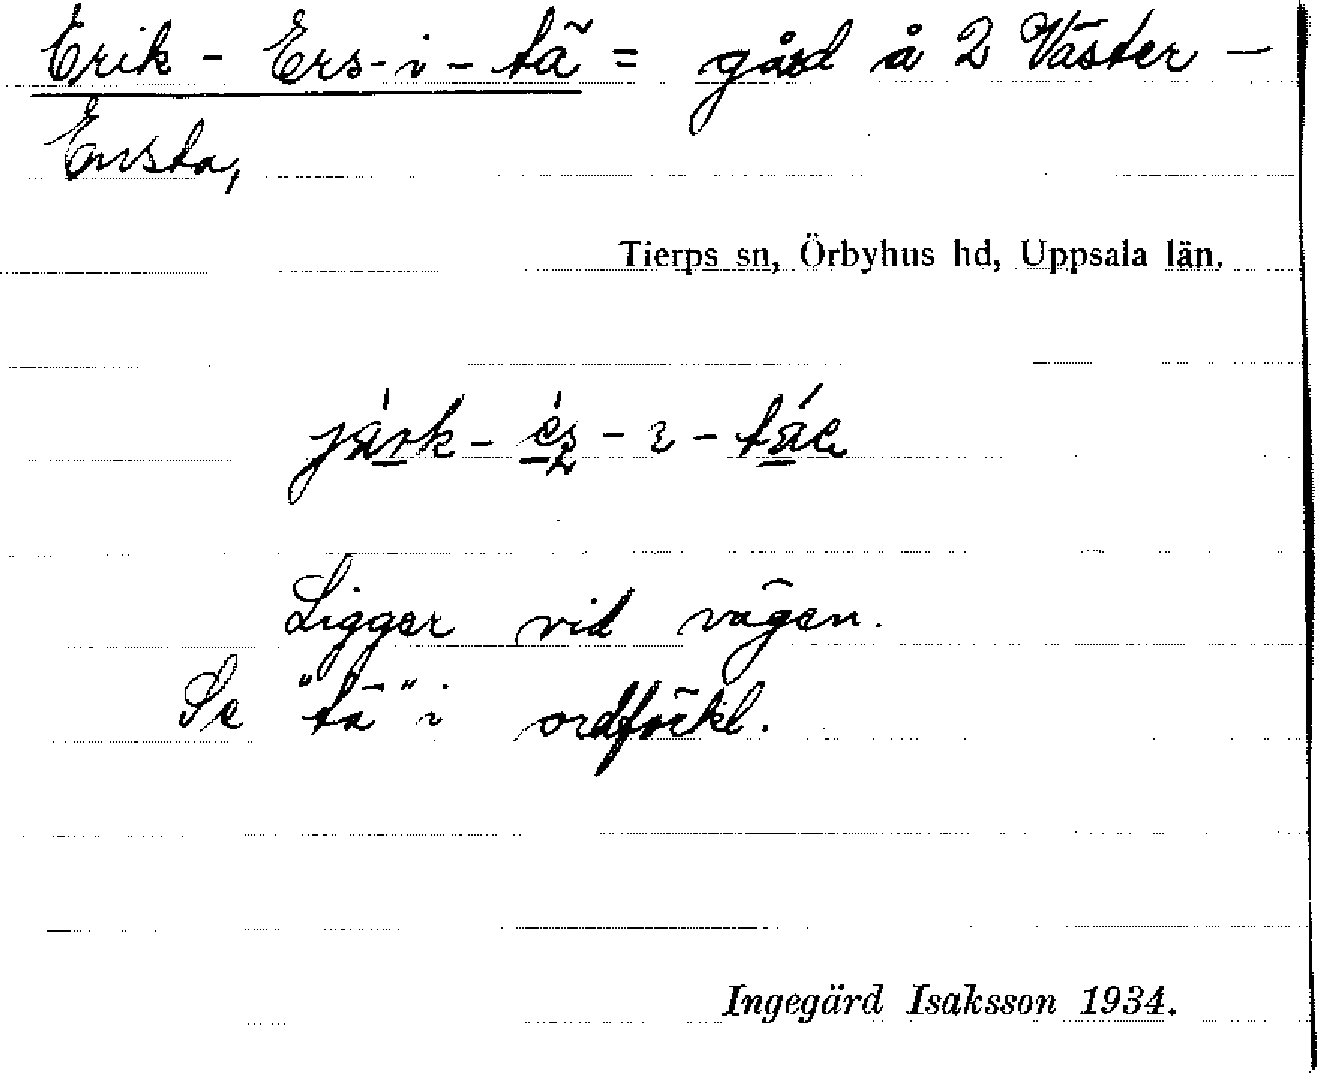 Erik-Ers-i-tä = gård å 2 Väster-
Ensta,
Tierps sn, Örbyhus hd, Uppsala län.
Ligger vid vägen.
Se "tä" i ordförkl.
Ingegärd Isaksson 1934.